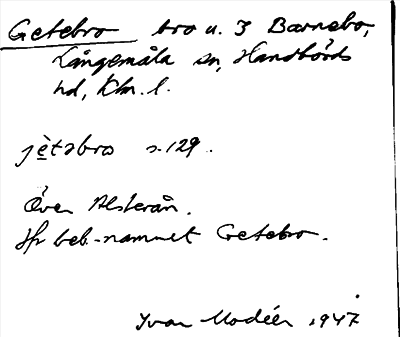 Getebro bro u. 3 Barnebo,
Långemåla sn, Handbörds
hd, Klm. l.
jètəbro s. 129.
Över Alsterån.
Jfr beb.-namnet Getebro.
Ivar Modéer 1947